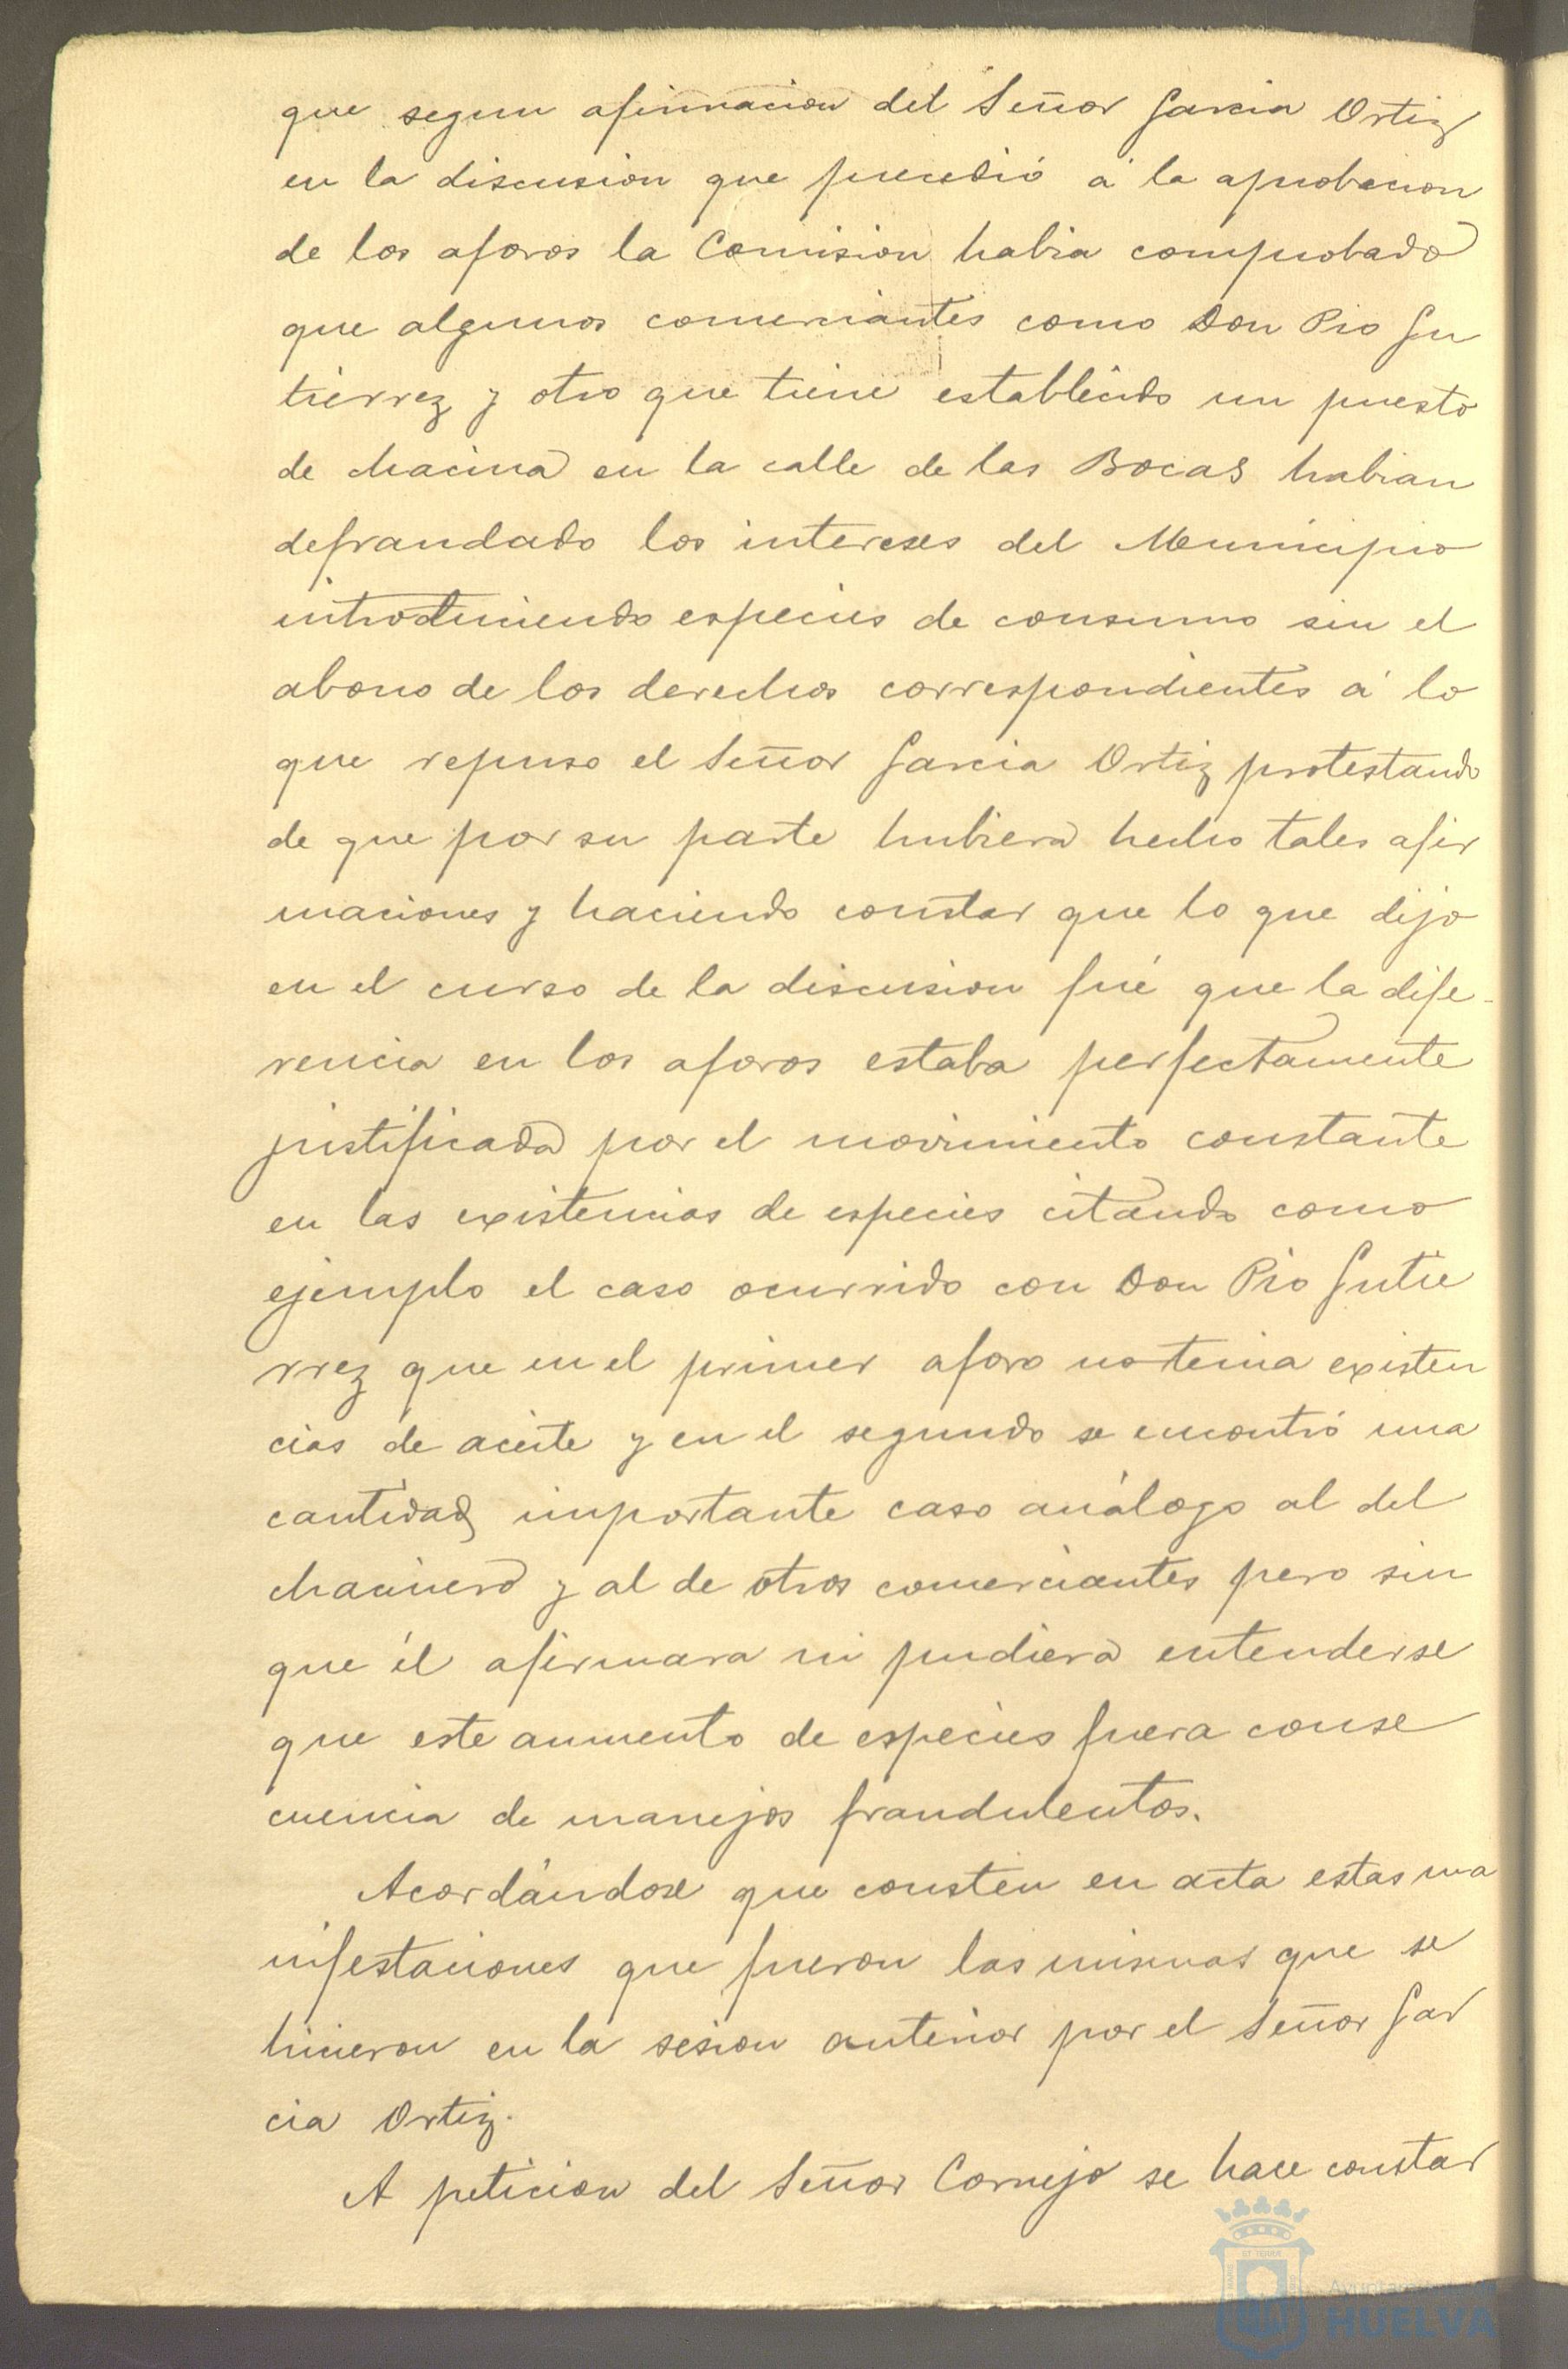 que segun afirmacion del Señor Garcia Ortiz
en la discusion que precedió á la aprobacion
de los aforos la Comision habia comprobado
que algunos comerciantes como Don Pio Gu
tierrez y otro que tiene establecido un puesto
de chacina en la calle de las Bocas habian
defraudado los intereses del Municipio
introduciendo especies de consumo sin el
abono de los derechos correspondientes á lo
que repuso el Señor Garcia Ortiz protestando
de que por su parte hubiera hecho tales afir
maciones y haciendo constar que lo que dijo
en el curso de la discusion fué que la dife-
rencia en los aforos estaba perfectamente
justificada por el movimiento constante
en las existencias de especies citando como
ejemplo el caso ocurrido con Don Pio Gutie
rrez que en el primer aforo no tenia existen
cias de aceite y en el segundo se encontró una
cantidad importante caso análogo al del
chacinero y al de otros comerciantes pero sin
que él afirmara ni pudiera entenderse
que este aumento de especies fuera conse
cuencia de manejos fraudulentos.
Acordándose que consten en acta estas ma
nifestaciones que fueron las mismas que se
hicieron en la sesion anterior por el Señor Gar
cia Ortiz.
A peticion del Señor Cornejo se hace constar
Ayuntamiento
HUELVA